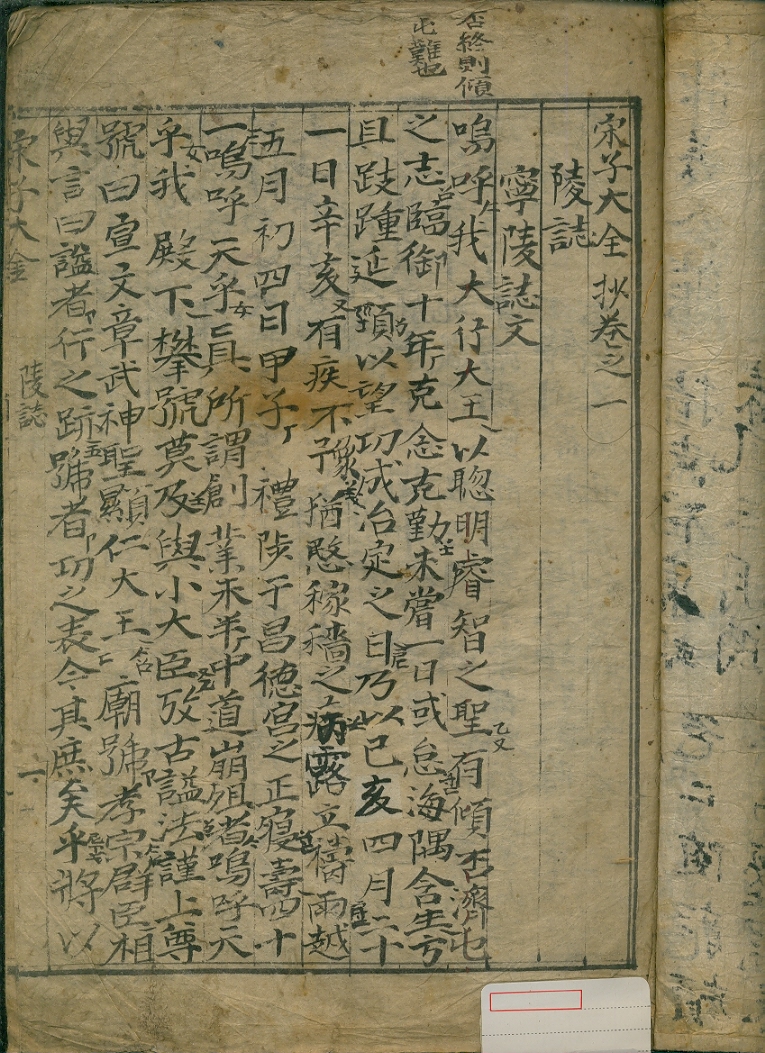 否終則傾
屯難也
宋子大全抄卷之一
陵誌
寧陵誌文
嗚呼我大行大王以聰明睿智之聖有傾否濟屯
之志臨御十年克念克勤未嘗一日或怠海隅含生方
且跂踵延頸以望功成治定之日乃以己亥四月二十
一日辛亥有疾不豫猶愍稼穡之病露立禱雨越
五月初四日甲子禮陟于昌德宮之正寢壽四十
一嗚呼天乎眞所謂創業未半中道崩殂者嗚呼天
乎我殿下攀號莫及與小大臣攷古謚法謹上尊
號曰宣文章武神聖顯仁大王廟號孝宗群臣相
與言曰謚者行之跡號者功之表今其庶矣乎將以
宋子大全 陵誌 一